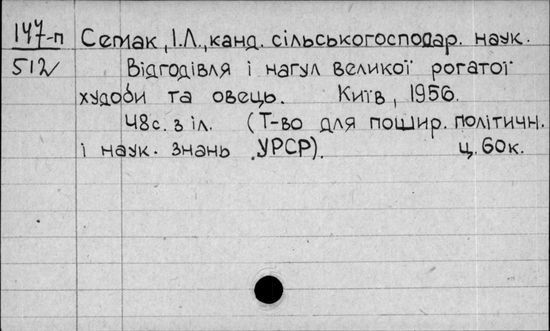 147-п Семак, І.Л., канд. сільськогосподар. наук.
512 Відгодівля і нагул великої рогатої
худоби та овець. Київ, 1956.
48с. з іл. (Т-во для пошир. політичн.
і наук. знань УРСР). ц. 60к.